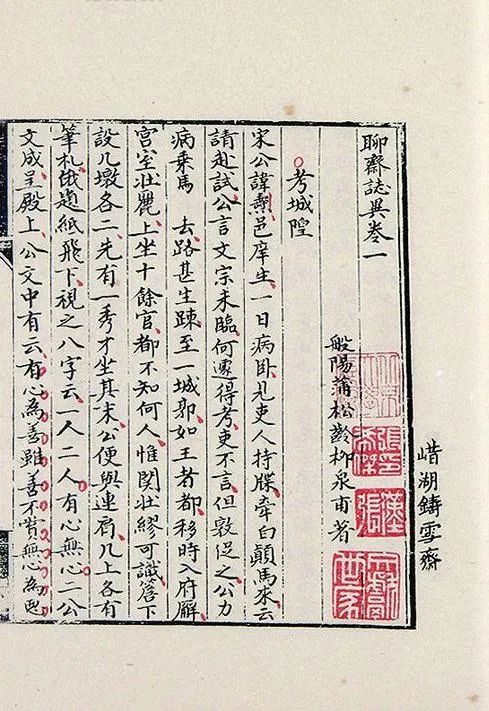 湖鑄雪齋
聊齋誌異卷一
般陽蒲松齡柳泉甫著
考城隍
宋公諱燾邑庠生一日病卧見吏人持牒牽白顛馬來云
請赴試公言文宗未臨何遽得考吏不言但敦促之公力
病乘馬 去路甚生疎至一城郭如王者都移時入府廨
宮室壯麗上坐十餘官都不知何人惟関壯繆可識簷下
設几墩各二先有一秀才坐其末公便與連肩几上各有
筆札俄題紙飛下視之八字云一人二人有心無心二公
文成呈殿上公文中有云有心為善雖善不賞無心為惡